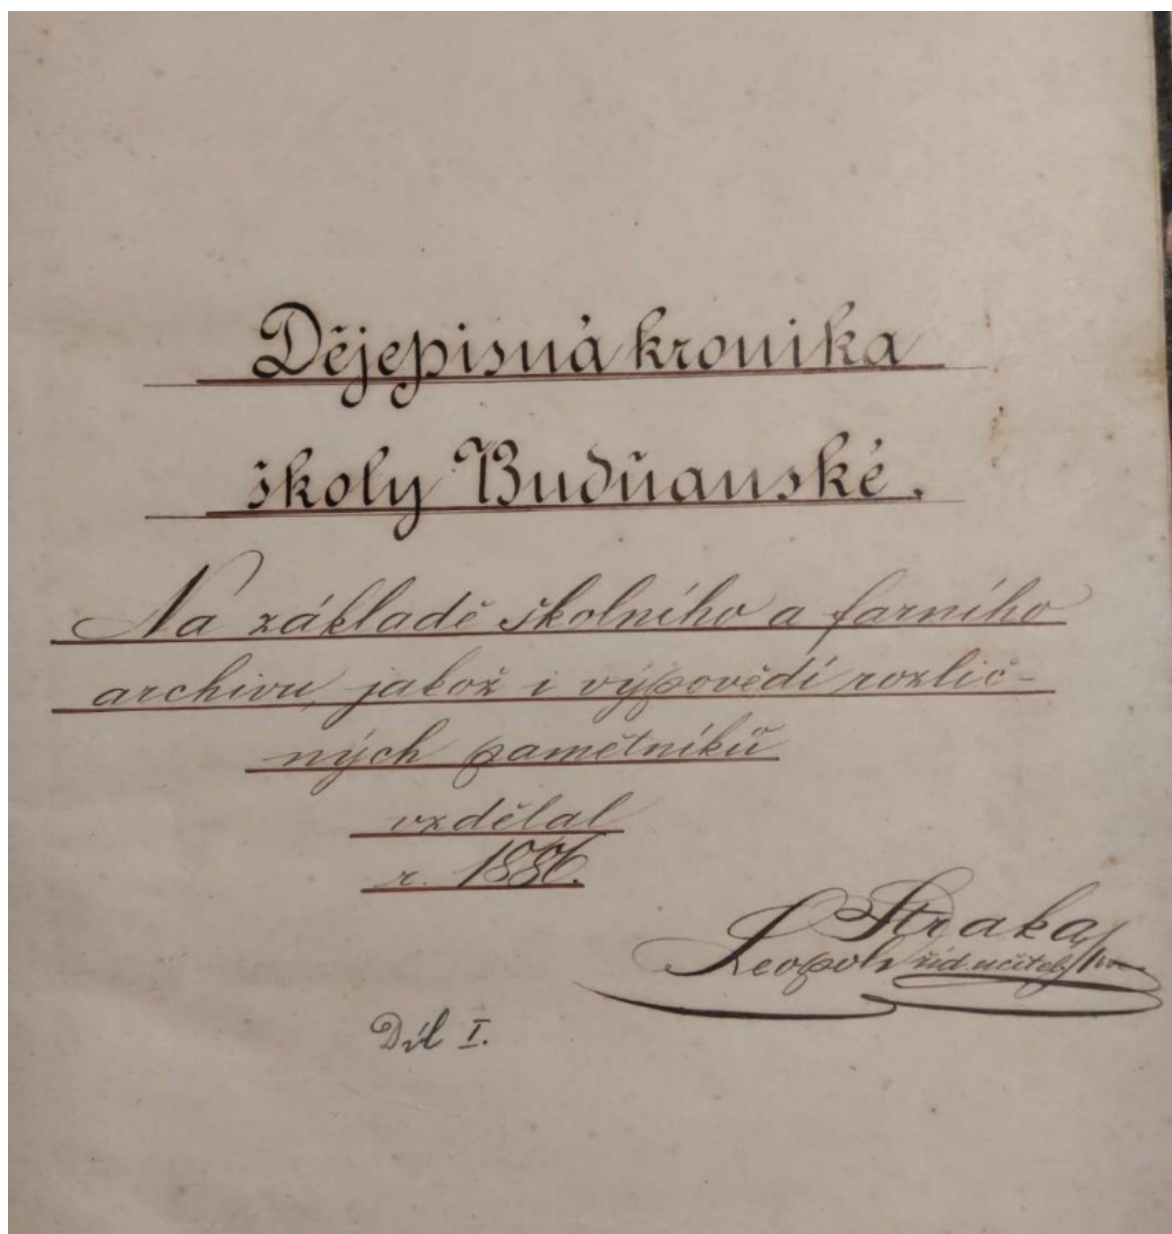 Dějepisná kronika
školy Budňanské.
Na základě školního a farního
archivu, jakož i výpovědí rozlič-
ných pamětníků
vzdělal
r. 1886.
Leopold Straka
říd. učitel
Díl I.